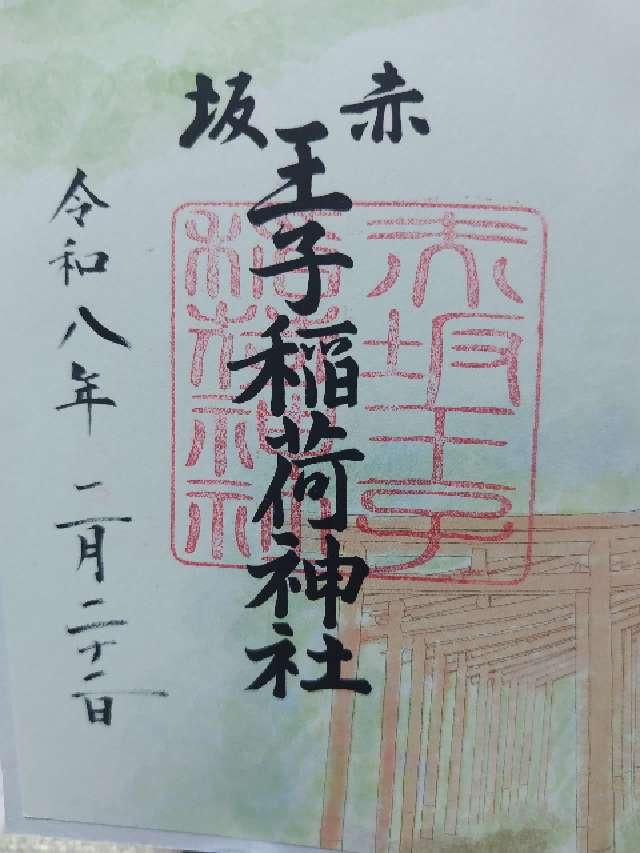 赤坂
王子稲荷神社
赤坂王子
稲荷神社
令和八年 二月二十二日